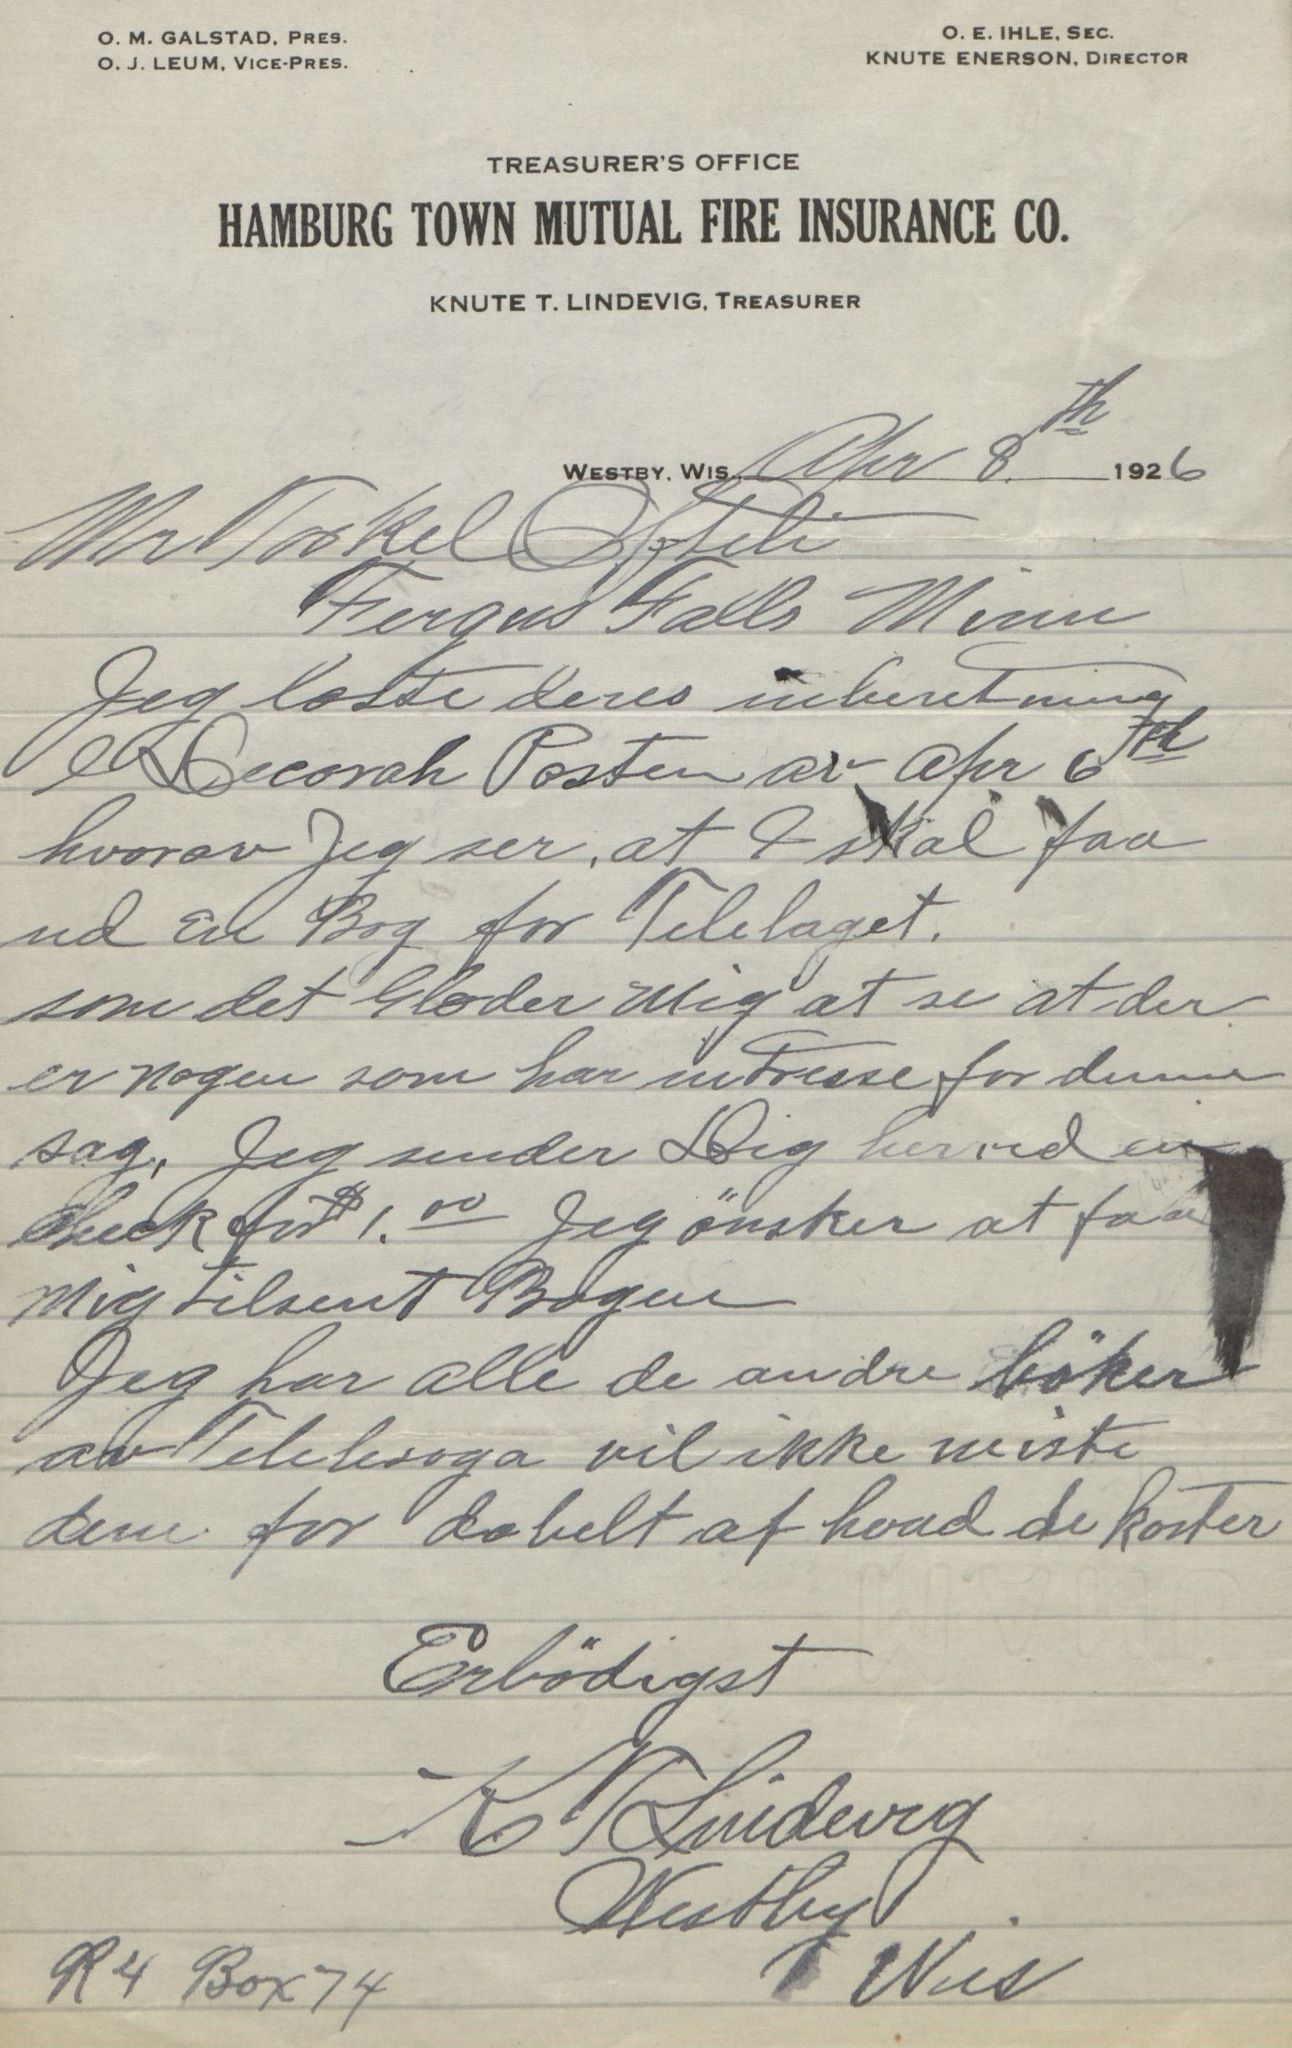 O. M. GALSTAD, PRES.
O. J. LEUM, VICE-PRES.
O. E. IHLE, SEC.
KNUTE ENERSON, DIRECTOR
TREASURER'S OFFICE
HAMBURG TOWN MUTUAL FIRE INSURANCE CO.
KNUTE T. LINDEVIG, TREASURER
WESTBY, WIS. Apr 8th 1926
Mr Torkel Oftelie
Fergus Falls Minn
Jeg læste deres inberetning
i Decorah Posten av Apr 6th
hvorav Jeg ser, at I skal faa
ud En Bog for Telelaget.
som det Glæder Mig at se at der
er nogen som har intresse for denne
sag, Jeg sender Dig herved en
Check for $1.00 Jeg önsker at faa
Mig tilsent Bogen
Jeg har alle de andre böker
av Telesoga vil ikke miste
dem for dobelt af hvad de koster
Erbödigst
K T Lindevig
Westby
Wis
R4 Box 74